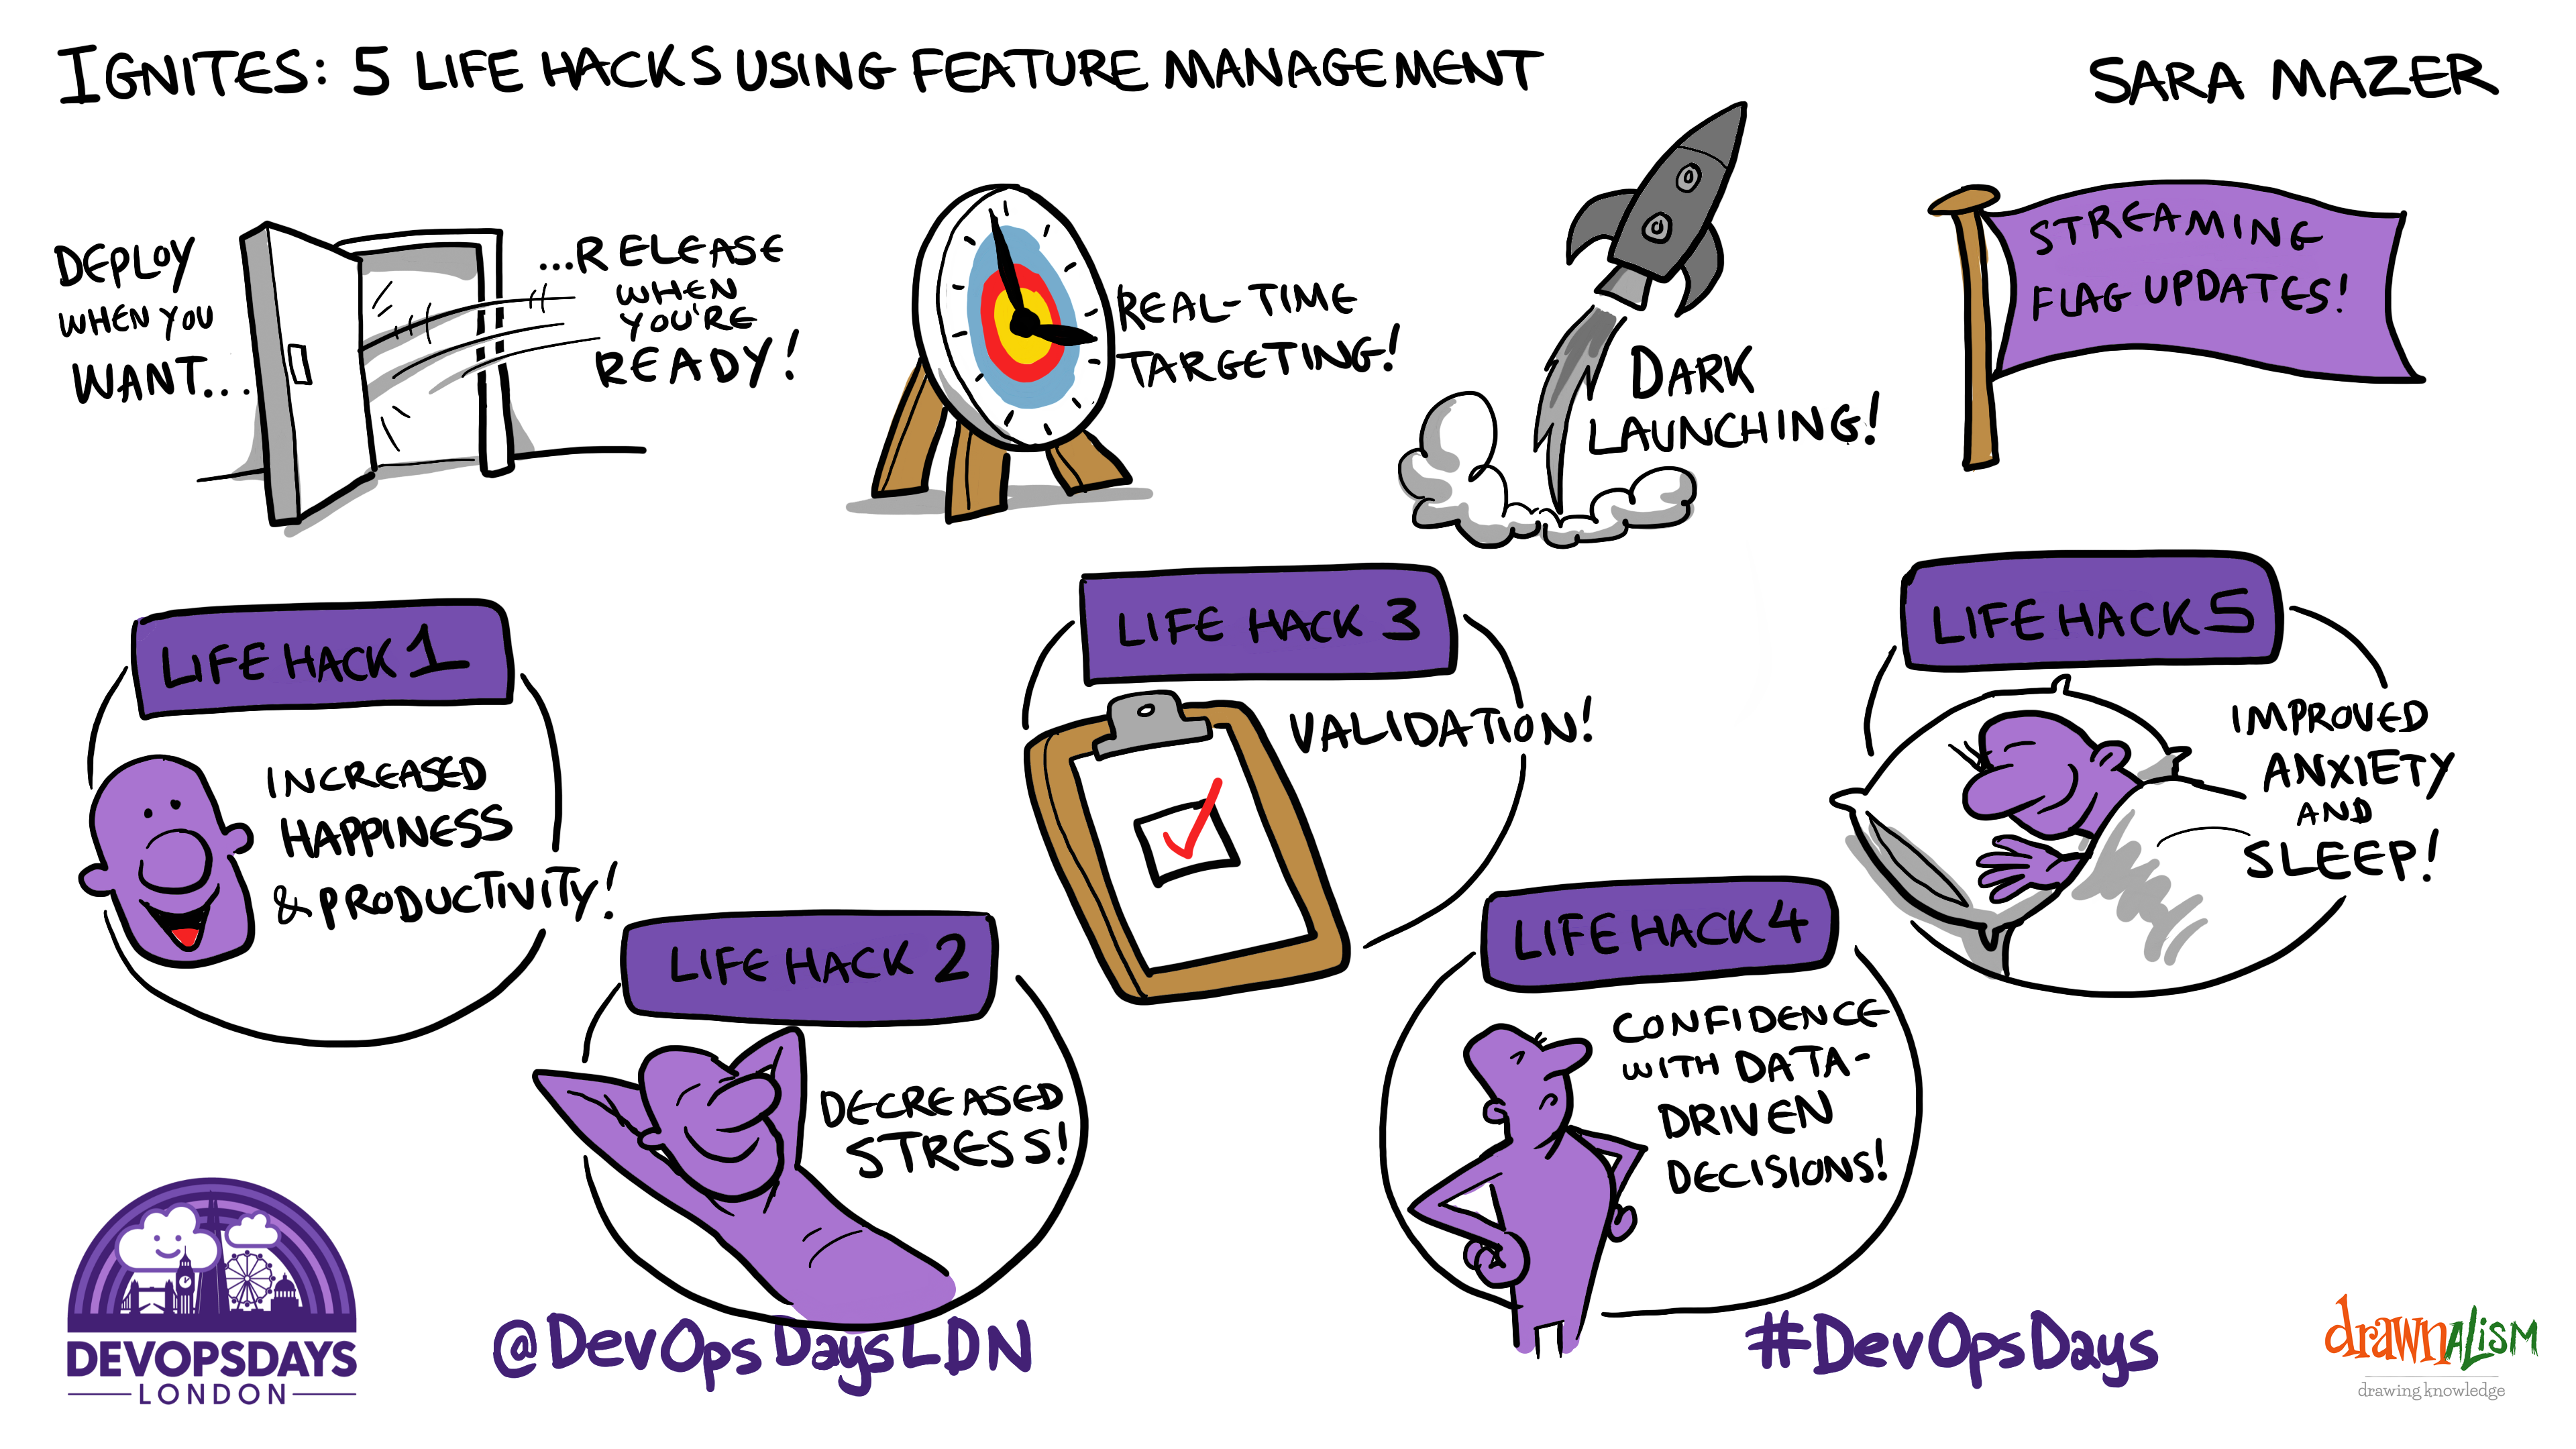 IGNITES: 5 LIFE HACKS USING FEATURE MANAGEMENT
SARA MAZER
DEPLOY
WHEN YOU
WANT...
...RELEASE
WHEN
YOU'RE
READY!
REAL-TIME
TARGETING!
DARK
LAUNCHING!
STREAMING
FLAG UPDATES!
LIFE HACK 1
INCREASED
HAPPINESS
& PRODUCTIVITY!
LIFE HACK 2
DECREASED
STRESS!
LIFE HACK 3
VALIDATION!
LIFE HACK 4
CONFIDENCE
WITH DATA-
DRIVEN
DECISIONS!
LIFE HACK 5
IMPROVED
ANXIETY
AND
SLEEP!
DEVOPSDAYS
LONDON
@DevOpsDaysLDN
#DevOpsDays
drawnalism
drawing knowledge